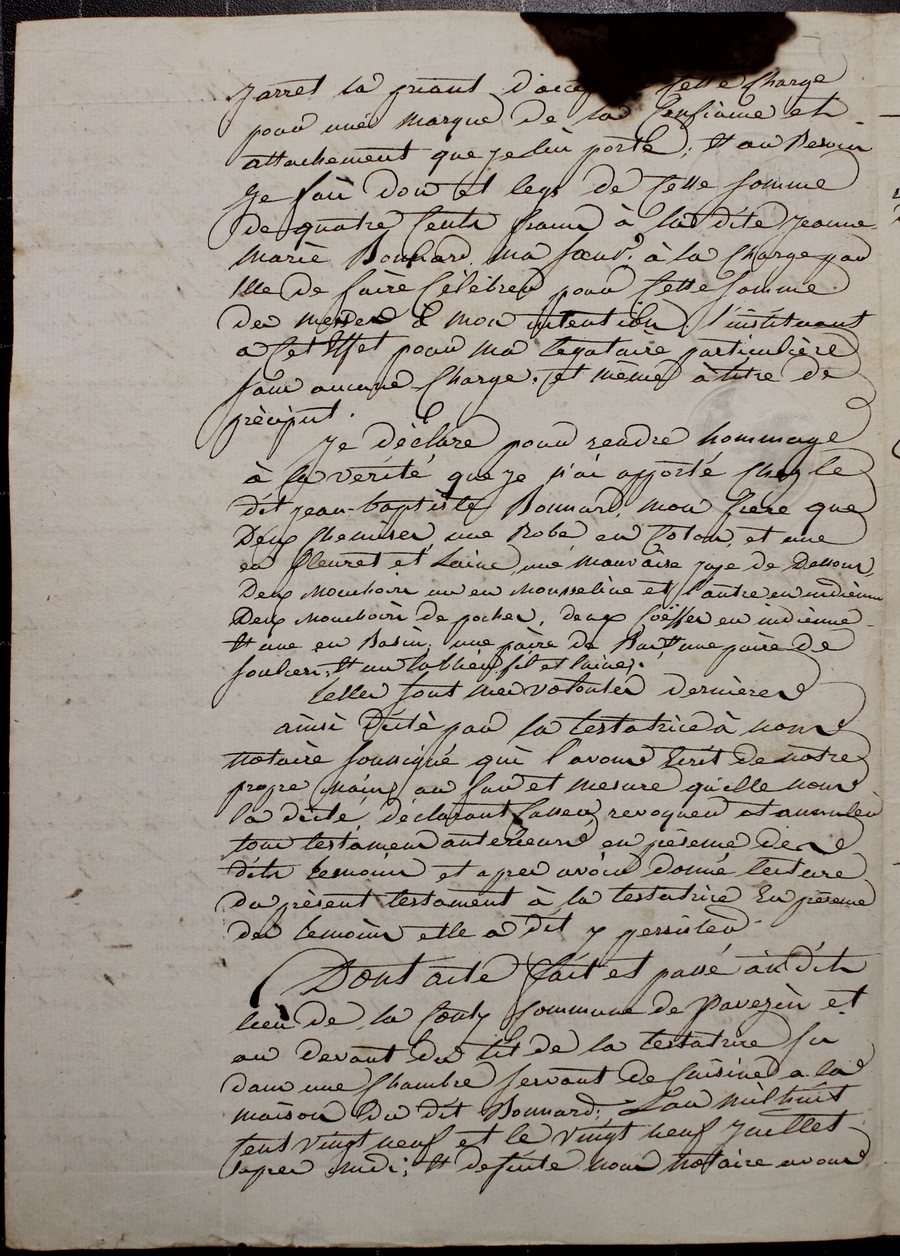 jarret la priant d'accep cette Charge
pour une marque de la Confiance et
attachement que je lui porte; Et au Besoin
Je fais don et legs de Cette Somme
de quatre Cents francs à la dite jeanne
Marie Bonnard, ma sœur, à la Charge par
Elle de faire Célébrer pour Cette Somme
des messes à mon intention, l'instituant
a Cet Effet pour ma légataire particulière
sans aucune Charge, et même à titre de
préciput.
Je déclare pour rendre hommage
à la vérité, que je n'ai apporté Chez le
dit jean-baptiste Bonnard, mon frere que
Deux Chemises, une Robe en Coton, et une
en fleuret et Laine, une mauvaise jupe de Dessous,
Deux Mouchoirs un en Mousseline et l'autre en indienne
Deux Mouchoirs de poches, deux Coëffes en indienne
Et une en Basin, une paire de Bas Et une paire de
souliers, Et un tablier fil et laine.
telles sont mes volontés dernieres
ainsi dicté par la testatrice à nous
Notaire soussigné qui l'avons Ecrit de notre
propre main au fur et mesure qu'elle nous
la dicté, déclarant Casser, revoquer et annuler
tous testamens antérieurs en présence des
dits témoins et apres avoir donné lecture
du présent testament à la testatrice En présence
des temoins elle a dit y persister.
Dont acte fait et passé au dit
lieu de la Commune de Pavezin et
au devant du lit de la testatrice sis
dans une Chambre servant de Cuisine a la
maison du dit Bonnard, L'an mil huit
Cent vingt neuf et le vingt neuf Juillet
apres midi; Et de suite nous Notaire avons